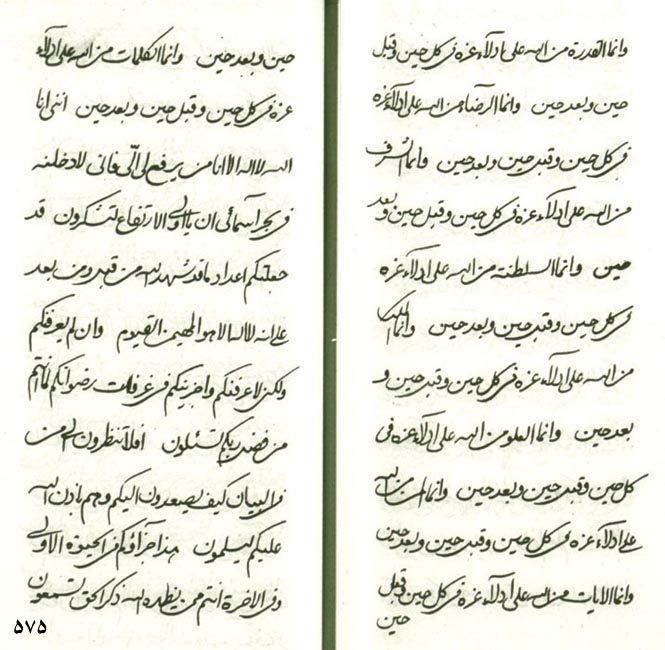 وانما القدرة من الله علی ادلاء عزه فی کل حین و قبل
حین و بعد حین وانما الرضاء من الله علی ادلاء عزه
فی کل حین و قبل حین و بعد حین وانما الشرف
من الله علی ادلاء عزه فی کل حین و قبل حین و بعد
حین وانما السلطنة من الله علی ادلاء عزه
فی کل حین و قبل حین و بعد حین وانما الملک
من الله علی ادلاء عزه فی کل حین و قبل حین و
بعد حین وانما العلو من الله علی ادلاء عزه فی
کل حین و قبل حین و بعد حین وانما من الله
علی ادلاء عزه فی کل حین و قبل حین و بعد حین
وانما الایات من الله علی ادلاء عزه فی کل حین و قبل
حین
حین و بعد حین وانما الکلمات من الله علی ادلاء
عزه فی کل حین و قبل حین و بعد حین اننی انا
الله لا اله الا انا من یرفع لی الی فانی لادخلنه
فی بحر اسمائی ان یا اولی الارتفاع لتشکرون قد
جعلتکم اعداد ما قد شهد الله من قبل و من بعد
علی انه لا اله الا هو المهیمن القیوم وان لم یعرفکم
ولکنی لاعرفنکم و اجزینکم فی غرفات رضوانکم ما انتم
من فضل ربکم لتسئلون افلا تنظرون الی من
فی البیان کیف یصعدون الیکم و هم باذن الله
علیکم لیسلمون هذا جزاؤکم فی الحیوة الاولی
و فی الاخرة انتم من یظهره الله ذکر الحق تسمعون
۵۷۵